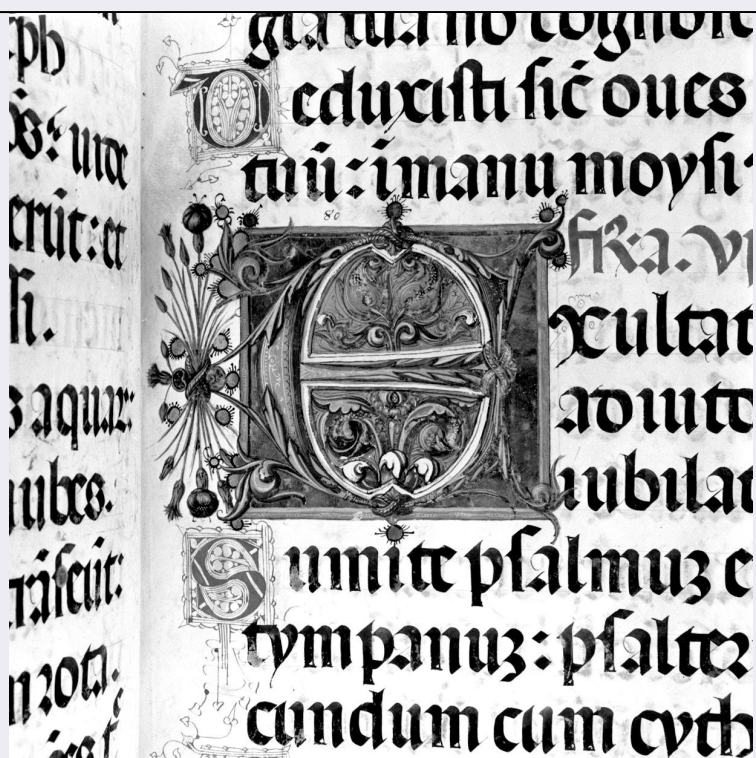 ph
erūt: et
si.
aquaꝝ:
nubes.
rāsеūt:
n rota.
gia tua nō cognosc
Deduxisti sic̄ oues
tuū: i manu moysi
80
FR.a. VI
Exultat
adiuto
iubilat
Sumite psalmuʒ e
tympanuʒ: psalter
cundum cum cyth